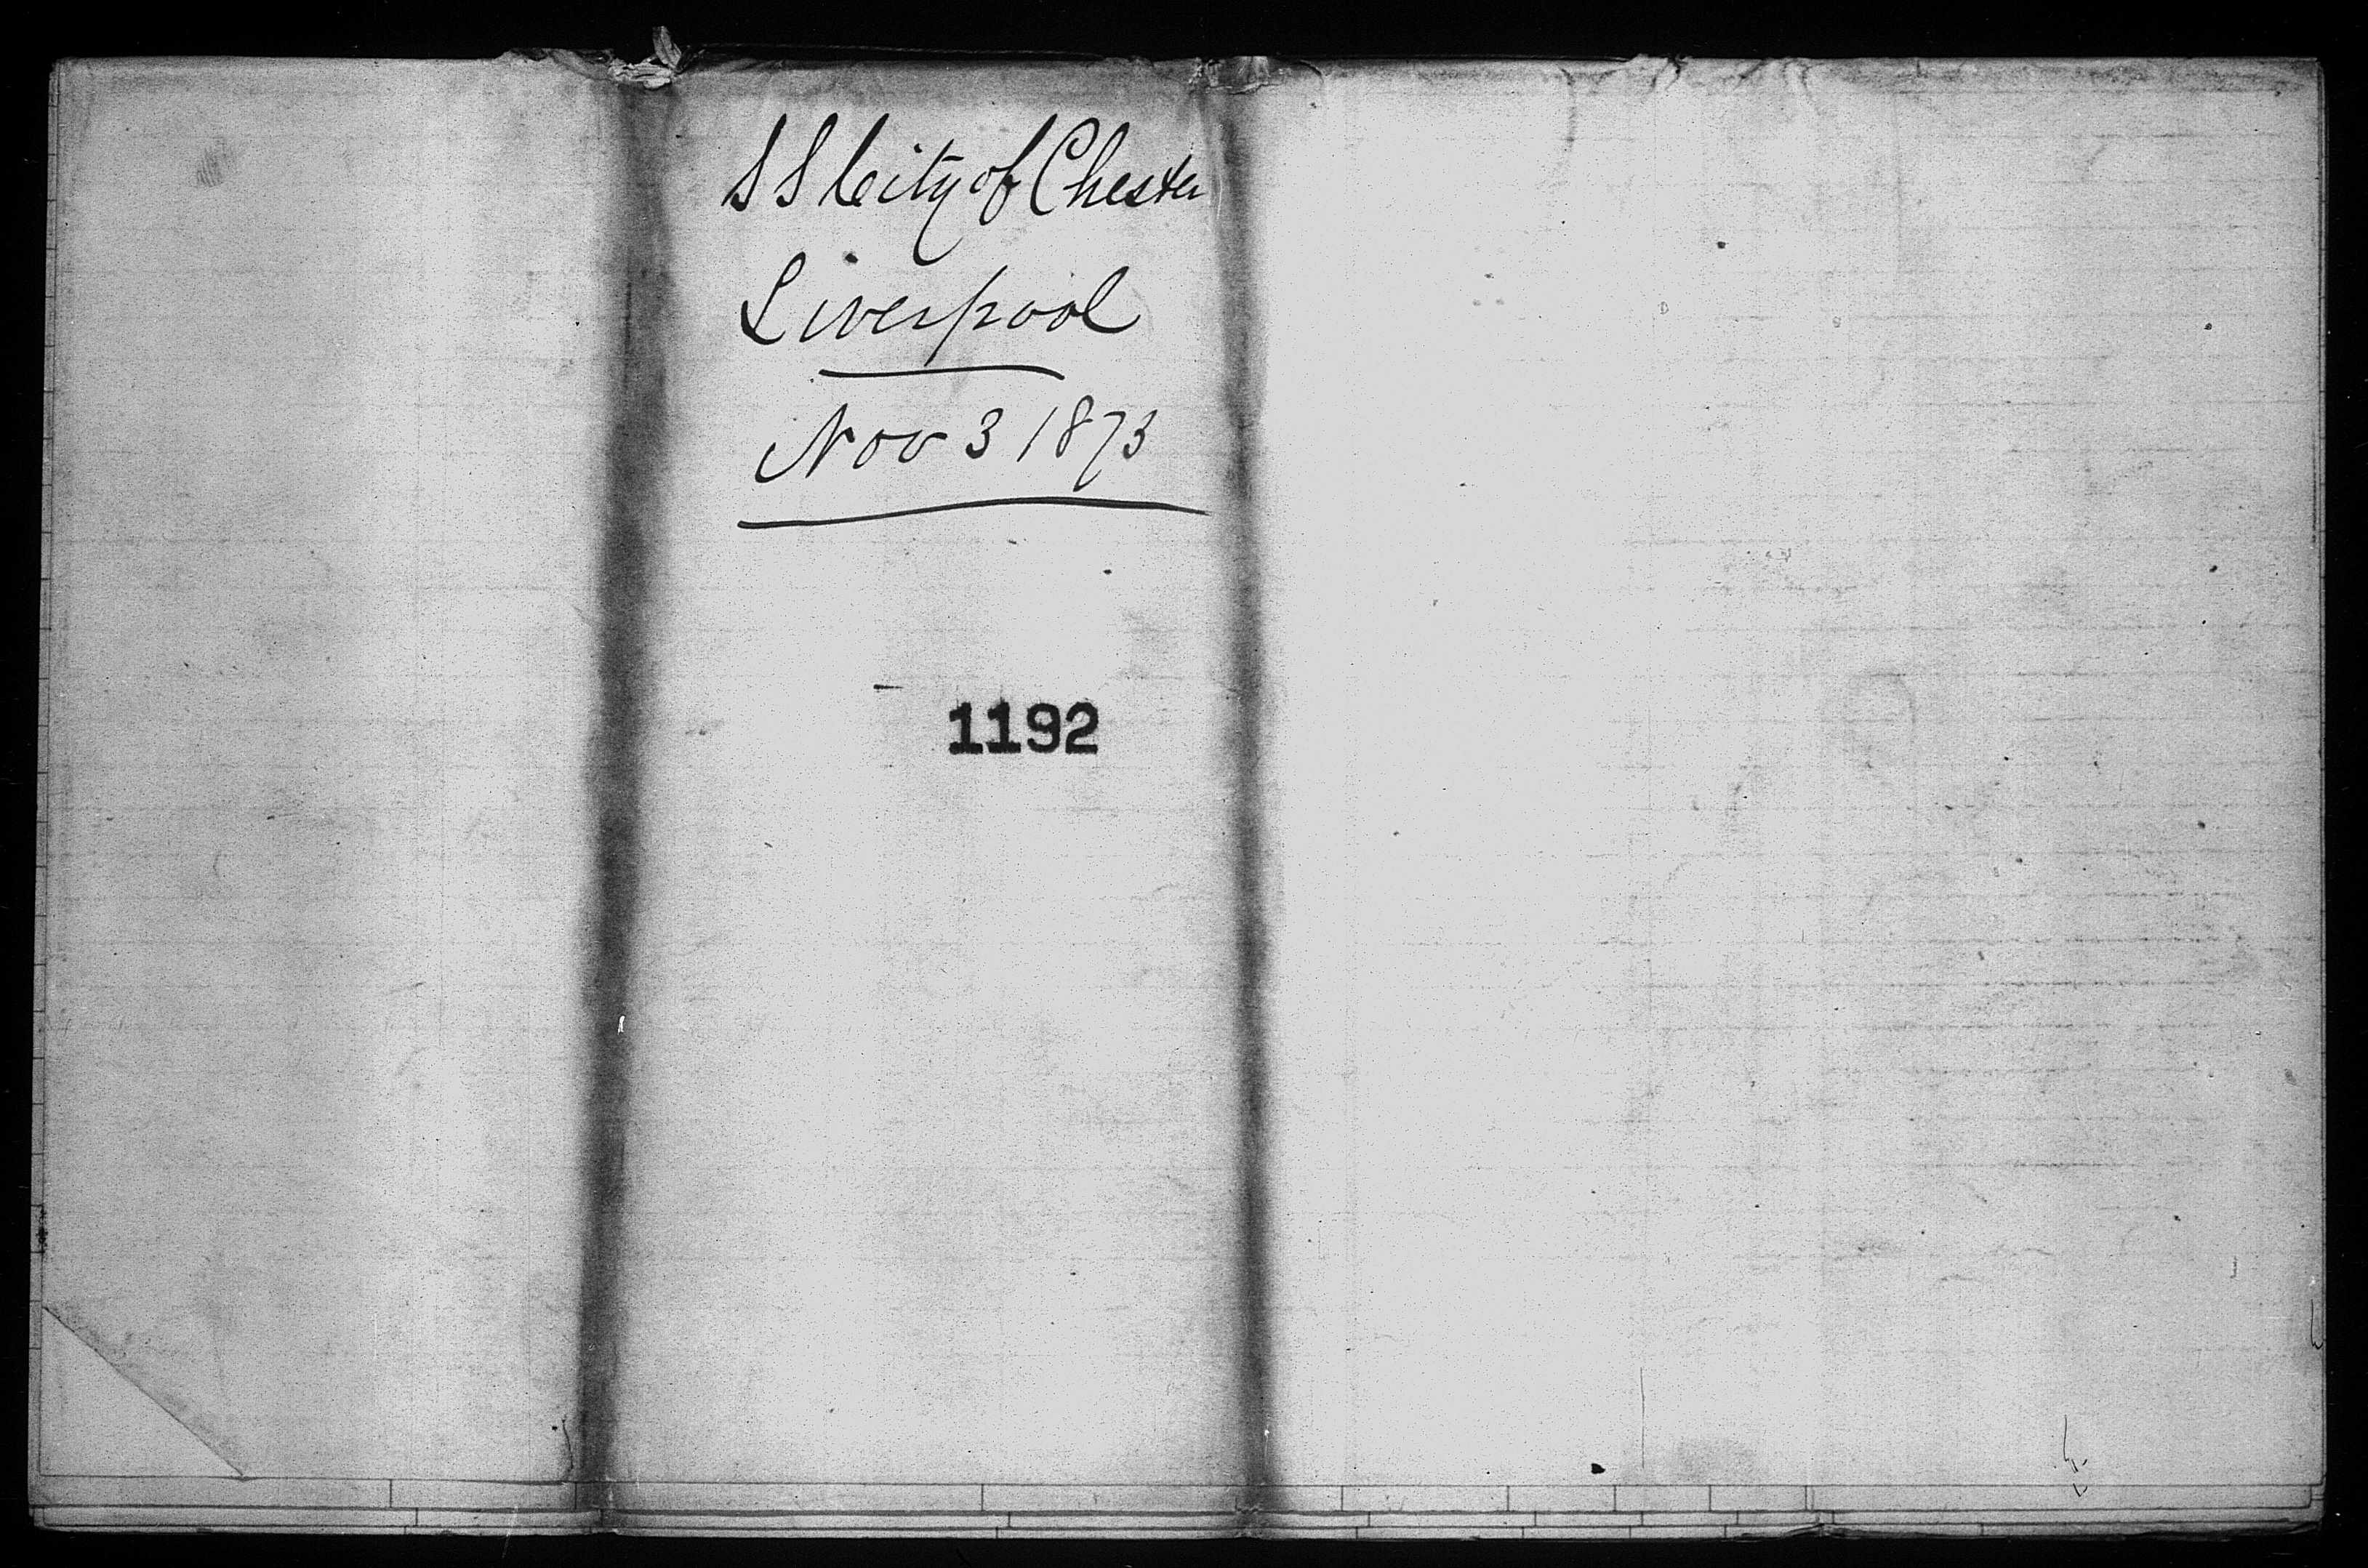 SS City of Chester
Liverpool
Nov 3 1873
1192